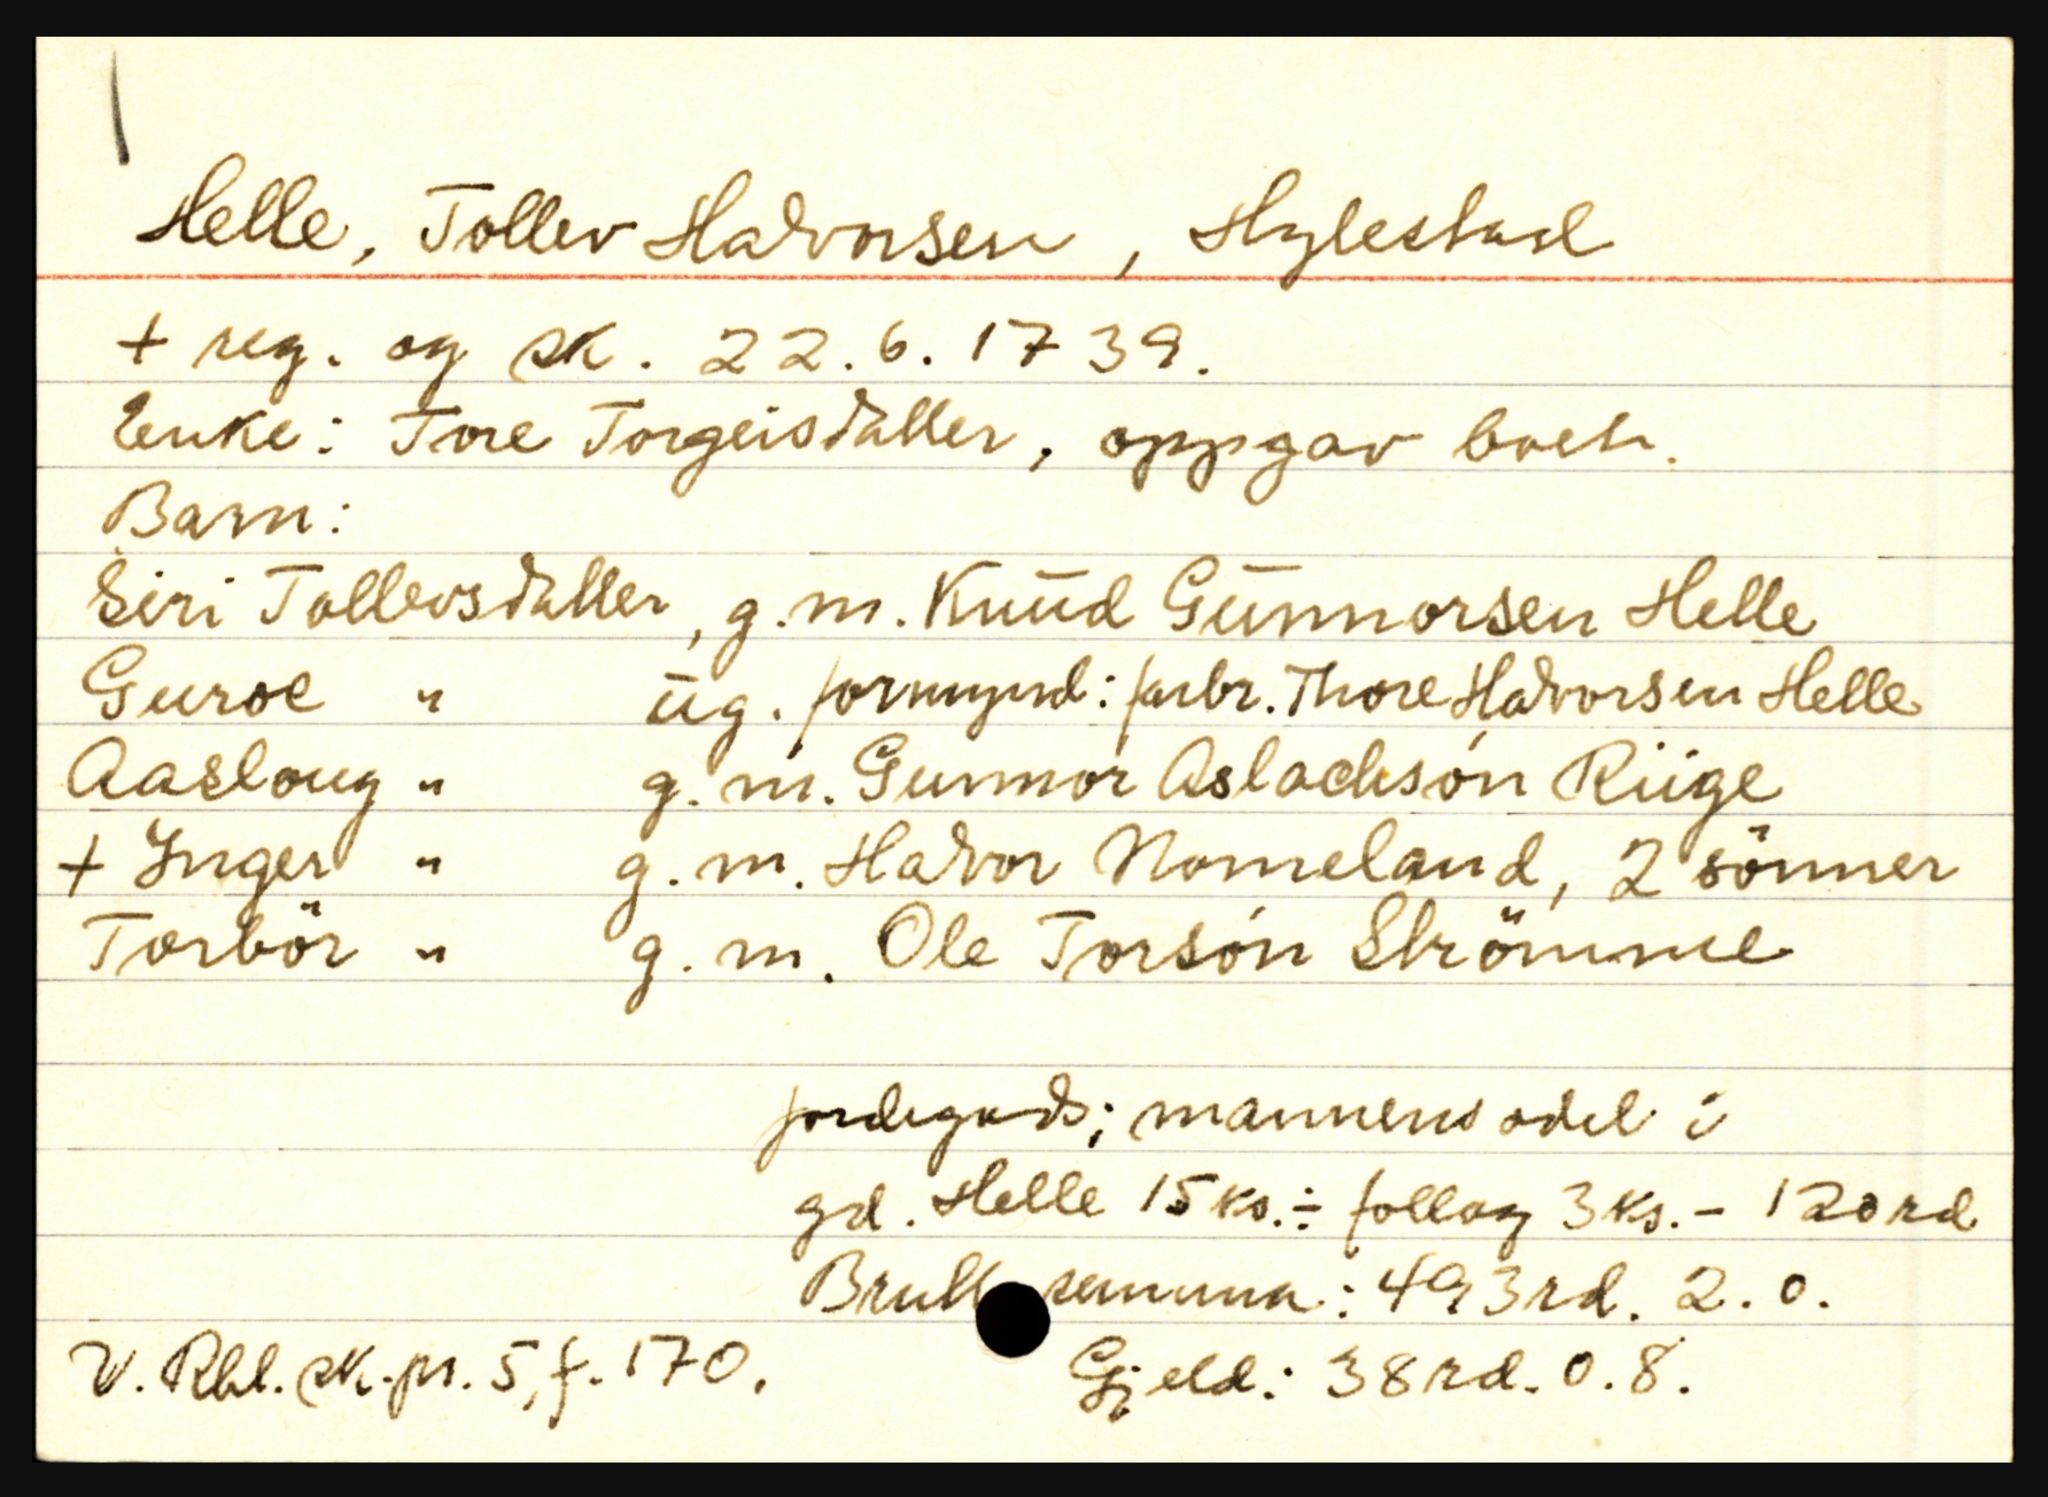 Helle, Tollev Halvorsen, Hylestad
+ reg. og sk. 22.6.1739.
Enke: Tore Torgeisdatter, oppgav boet.
Barn:
Siri Tollevsdatter, g.m. Knud Gunnorsen Helle
Guroe " ug. formynd: farbr. Thore Halvorsen Helle
Aasloug " g.m. Gunnor Aslachsón Riige
+ Inger " g.m. Halvor Nomeland, 2 sönner
Torbör " g.m. Ole Torsón Strömme
jordegods; mannens odel i
gd. Helle 15 ks. ÷ follog 3 ks. - 120 rd
Brutto summa: 493 rd. 2. 0.
V. Rbl. sk. pr. 5, f. 170. Gjeld: 38 rd. 0. 8.